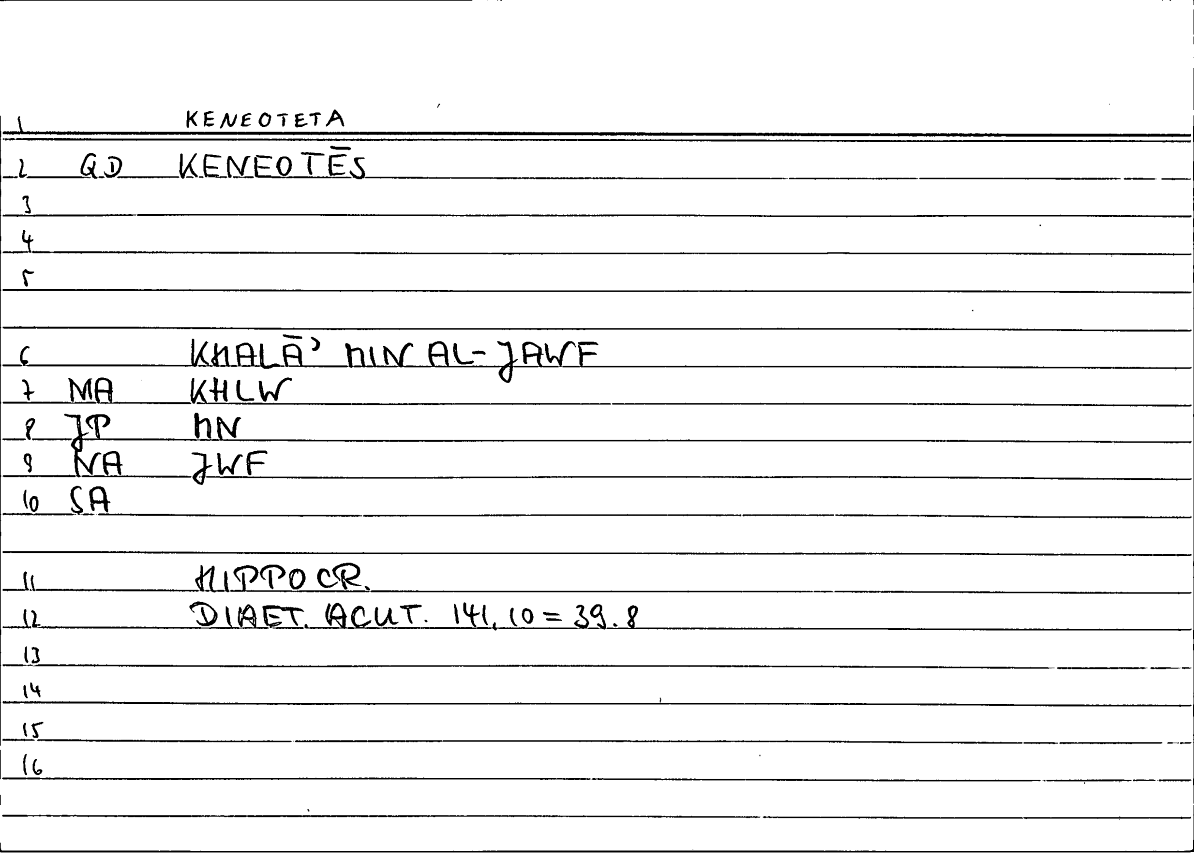 1 KENEOTETA
2 QD KENEOTĒS
3
4
5
6 KHALĀʾ MIN AL-JAWF
7 MA KHLW
8 JP MN
9 NA JWF
10 SA
11 HIPPOCR.
12 DIAET. ACUT. 141,10 = 39.8
13
14
15
16